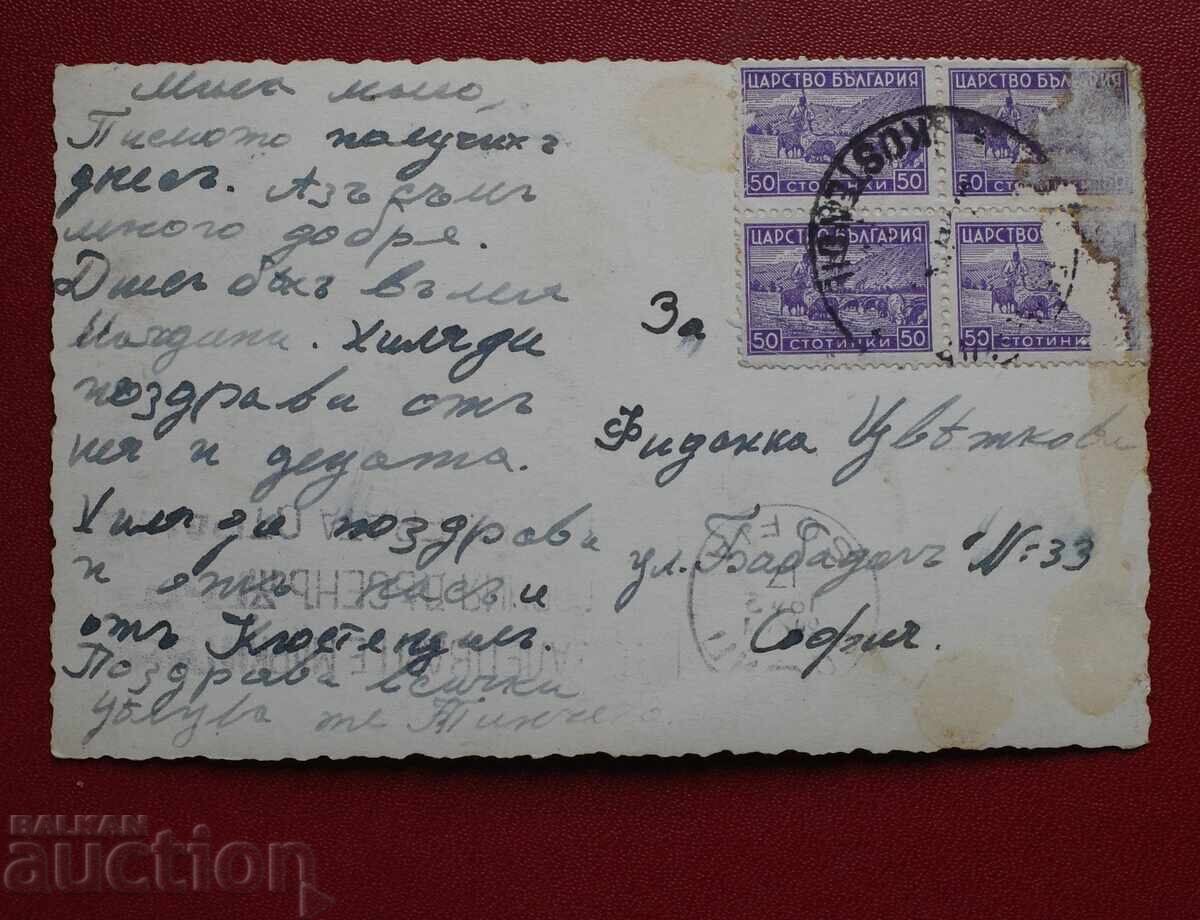 Мила мамо,
Писмото получихъ
днесъ. Азъ съмъ
много добре.
Днес бѣхъ въ леля
Хиляди
поздрави отъ
нея и децата.
Хиляди поздрави
и отъ насъ и
отъ Кюстендилъ.
Поздрави всички
Цѣлува те
ЦАРСТВО БЪЛГАРИЯ
50 СТОТИНКИ 50
ЦАРСТВО БЪЛГАРИЯ
50 СТОТИНКИ
ЦАРСТВО БЪЛГАРИЯ
50 СТОТИНКИ 50
ЦАРСТВО
50 СТОТИНКИ
За
Фиданка Цвѣткова
ул. Бабадагъ № 33
София.
BALKAN
auction